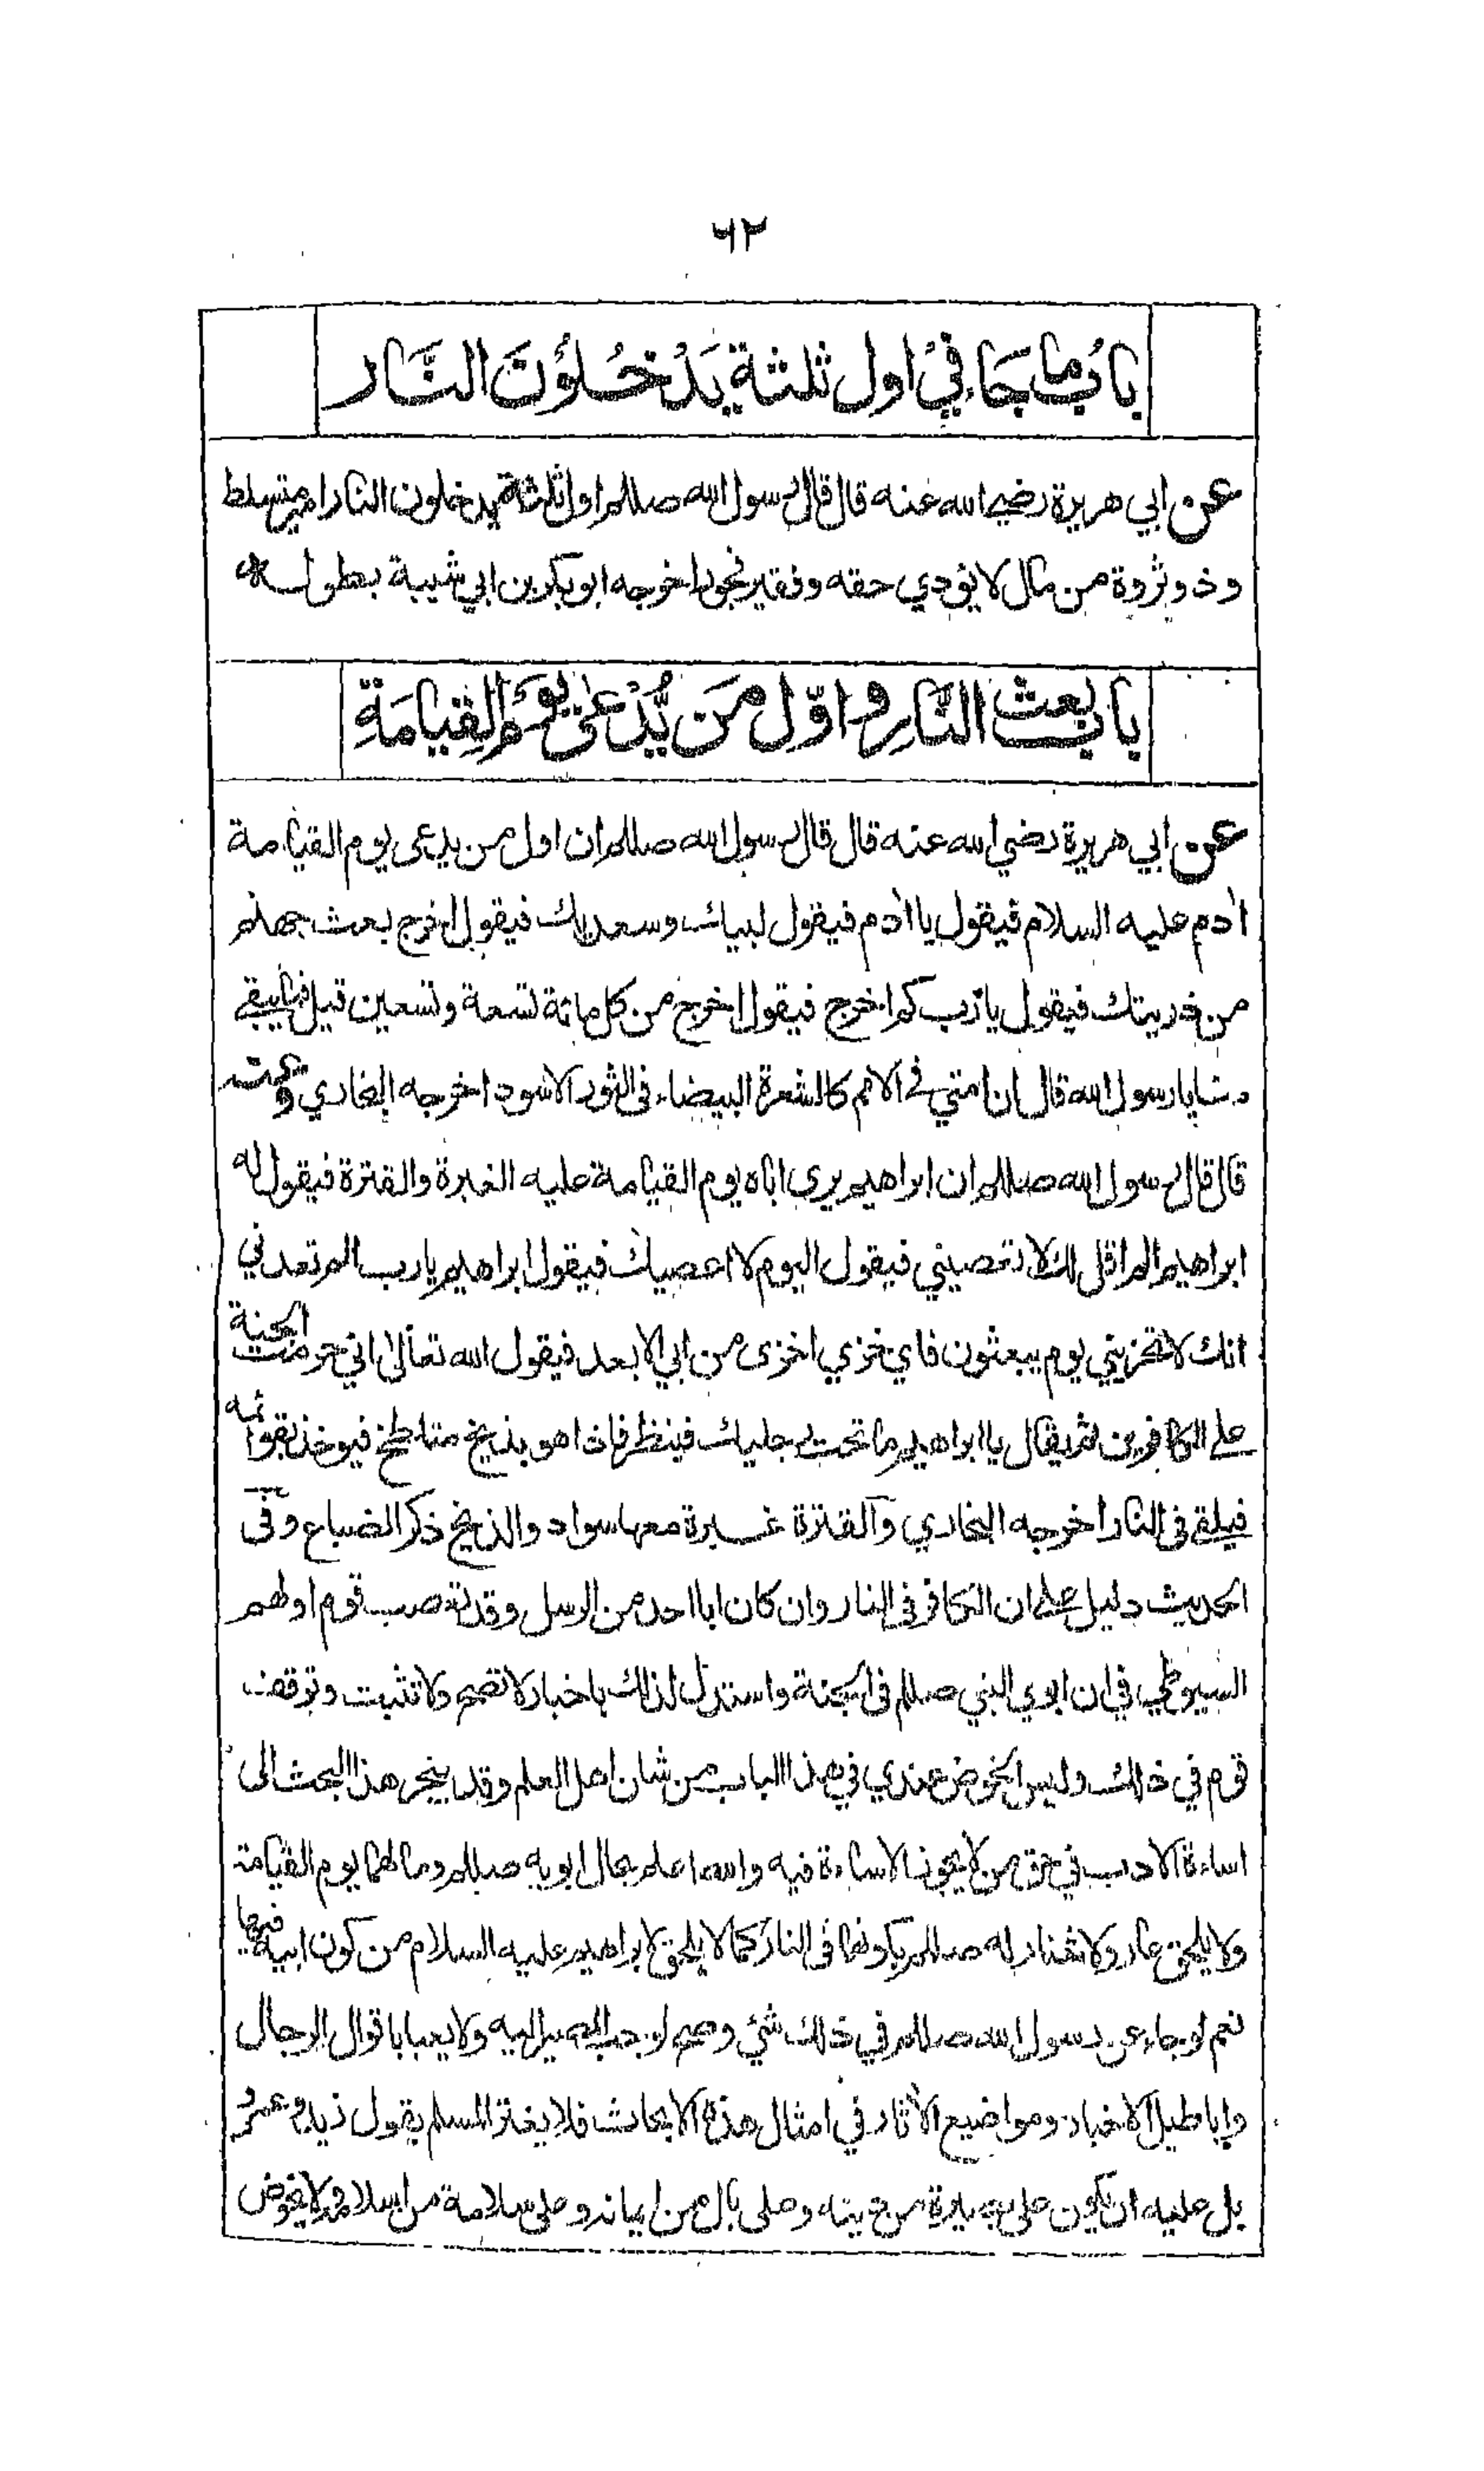 ٦٢
باب ما جاء في اول ثلثة يَدْخُلُوْنَ النَّار
عن ابي هريرة رضي الله عنه قال قال رسول الله صللم اول ثلثة يدخلون النار امير متسلط
وذو ثروة من مال لا يؤدي حقه وفقير فخور اخرجه ابو بكر بن ابي شيبة بطوله
باب بعث النَّارِ واوّل مَن يُّدْعىٰ يَوْمَ الْقِيَامَةِ
عن ابي هريرة رضي الله عنه قال قال رسول الله صللم ان اول من يدعى يوم القيامة
اٰدم عليه السلام فيقول يا اٰدم فيقول لبيك وسعديك فيقول اخرج بعث جهنم
من ذريتك فيقول يا رب كم اخرج فيقول اخرج من كل مائة تسعة وتسعين قيل فما يبقي
منا يا رسول الله قال ان امتي في الامم كالشعرة البيضاء في الثور الاسود اخرجه البخاري وعنه
قال قال رسول الله صللم ان ابراهيم يرى اباه يوم القيامة عليه الغبرة والقترة فيقول له
ابراهيم الم اقل لك لا تعصيني فيقول اليوم لا اعصيك فيقول ابراهيم يا رب الم تعدني
انك لا تخزيني يوم يبعثون فاي خزي اخزى من ابي الابعد فيقول الله تعالىٰ اني حرمت الجنة
على الكافرين ثم يقال يا ابراهيم ما تحت رجليك فينظر فاذا هو بذيخ متلطخ فيوخذ بقوائمه
فيلقى في النار اخرجه البخاري والقترة غبرة معها سواد والذيخ ذكر الضباع وفى
الحديث دليل على ان الكافر في النار وان كان ابا احد من الرسل وقد تعصب قوم اولهم
السيوطي في ان ابوي النبي صللم في الجنة واستدل لذلك باخبار لا تصح ولا تثبت وتوقف
قوم في ذلك وليس الخوض عندي في هذا الباب من شان اهل العلم وقد ينجر هذا البحث الى
اساءة الادب في حق من لا يجوز الاساءة فيه والله اعلم بحال ابويه صللم وما لهما يوم القيامة
ولا يلحق عار ولا شنار له صللم بكونهما في النار كما لا يلحق لابراهيم عليه السلام من كون ابيه فيها
نعم لو جاء عن رسول الله صللم في ذلك شئي وصح لوجب المصير اليه ولا يعبا باقوال الرجال
واباطيل الاخبار ومواضيع الاٰثار في امثال هذه الابحاث فلا يغتر المسلم بقول زيد وعمرو
بل عليه ان يكون على بصيرة من دينه وعلى بال من ايمانه وعلى سلامة من اسلامه ولا يخوض